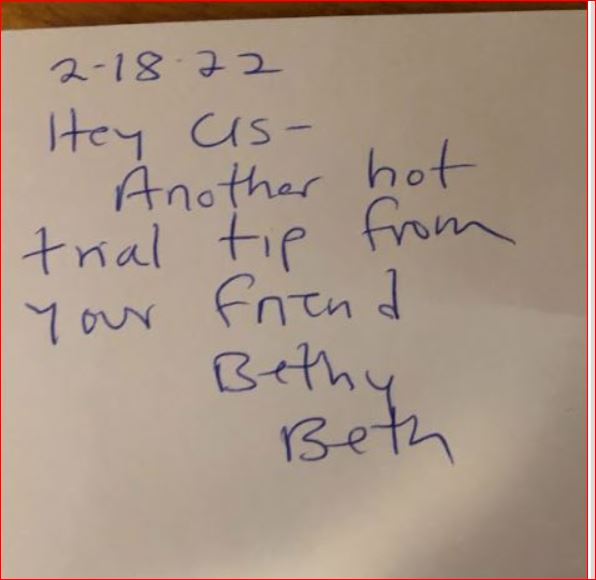 2-18-22
Hey Cis-
Another hot
trial tip from
your friend
Bethy
Beth